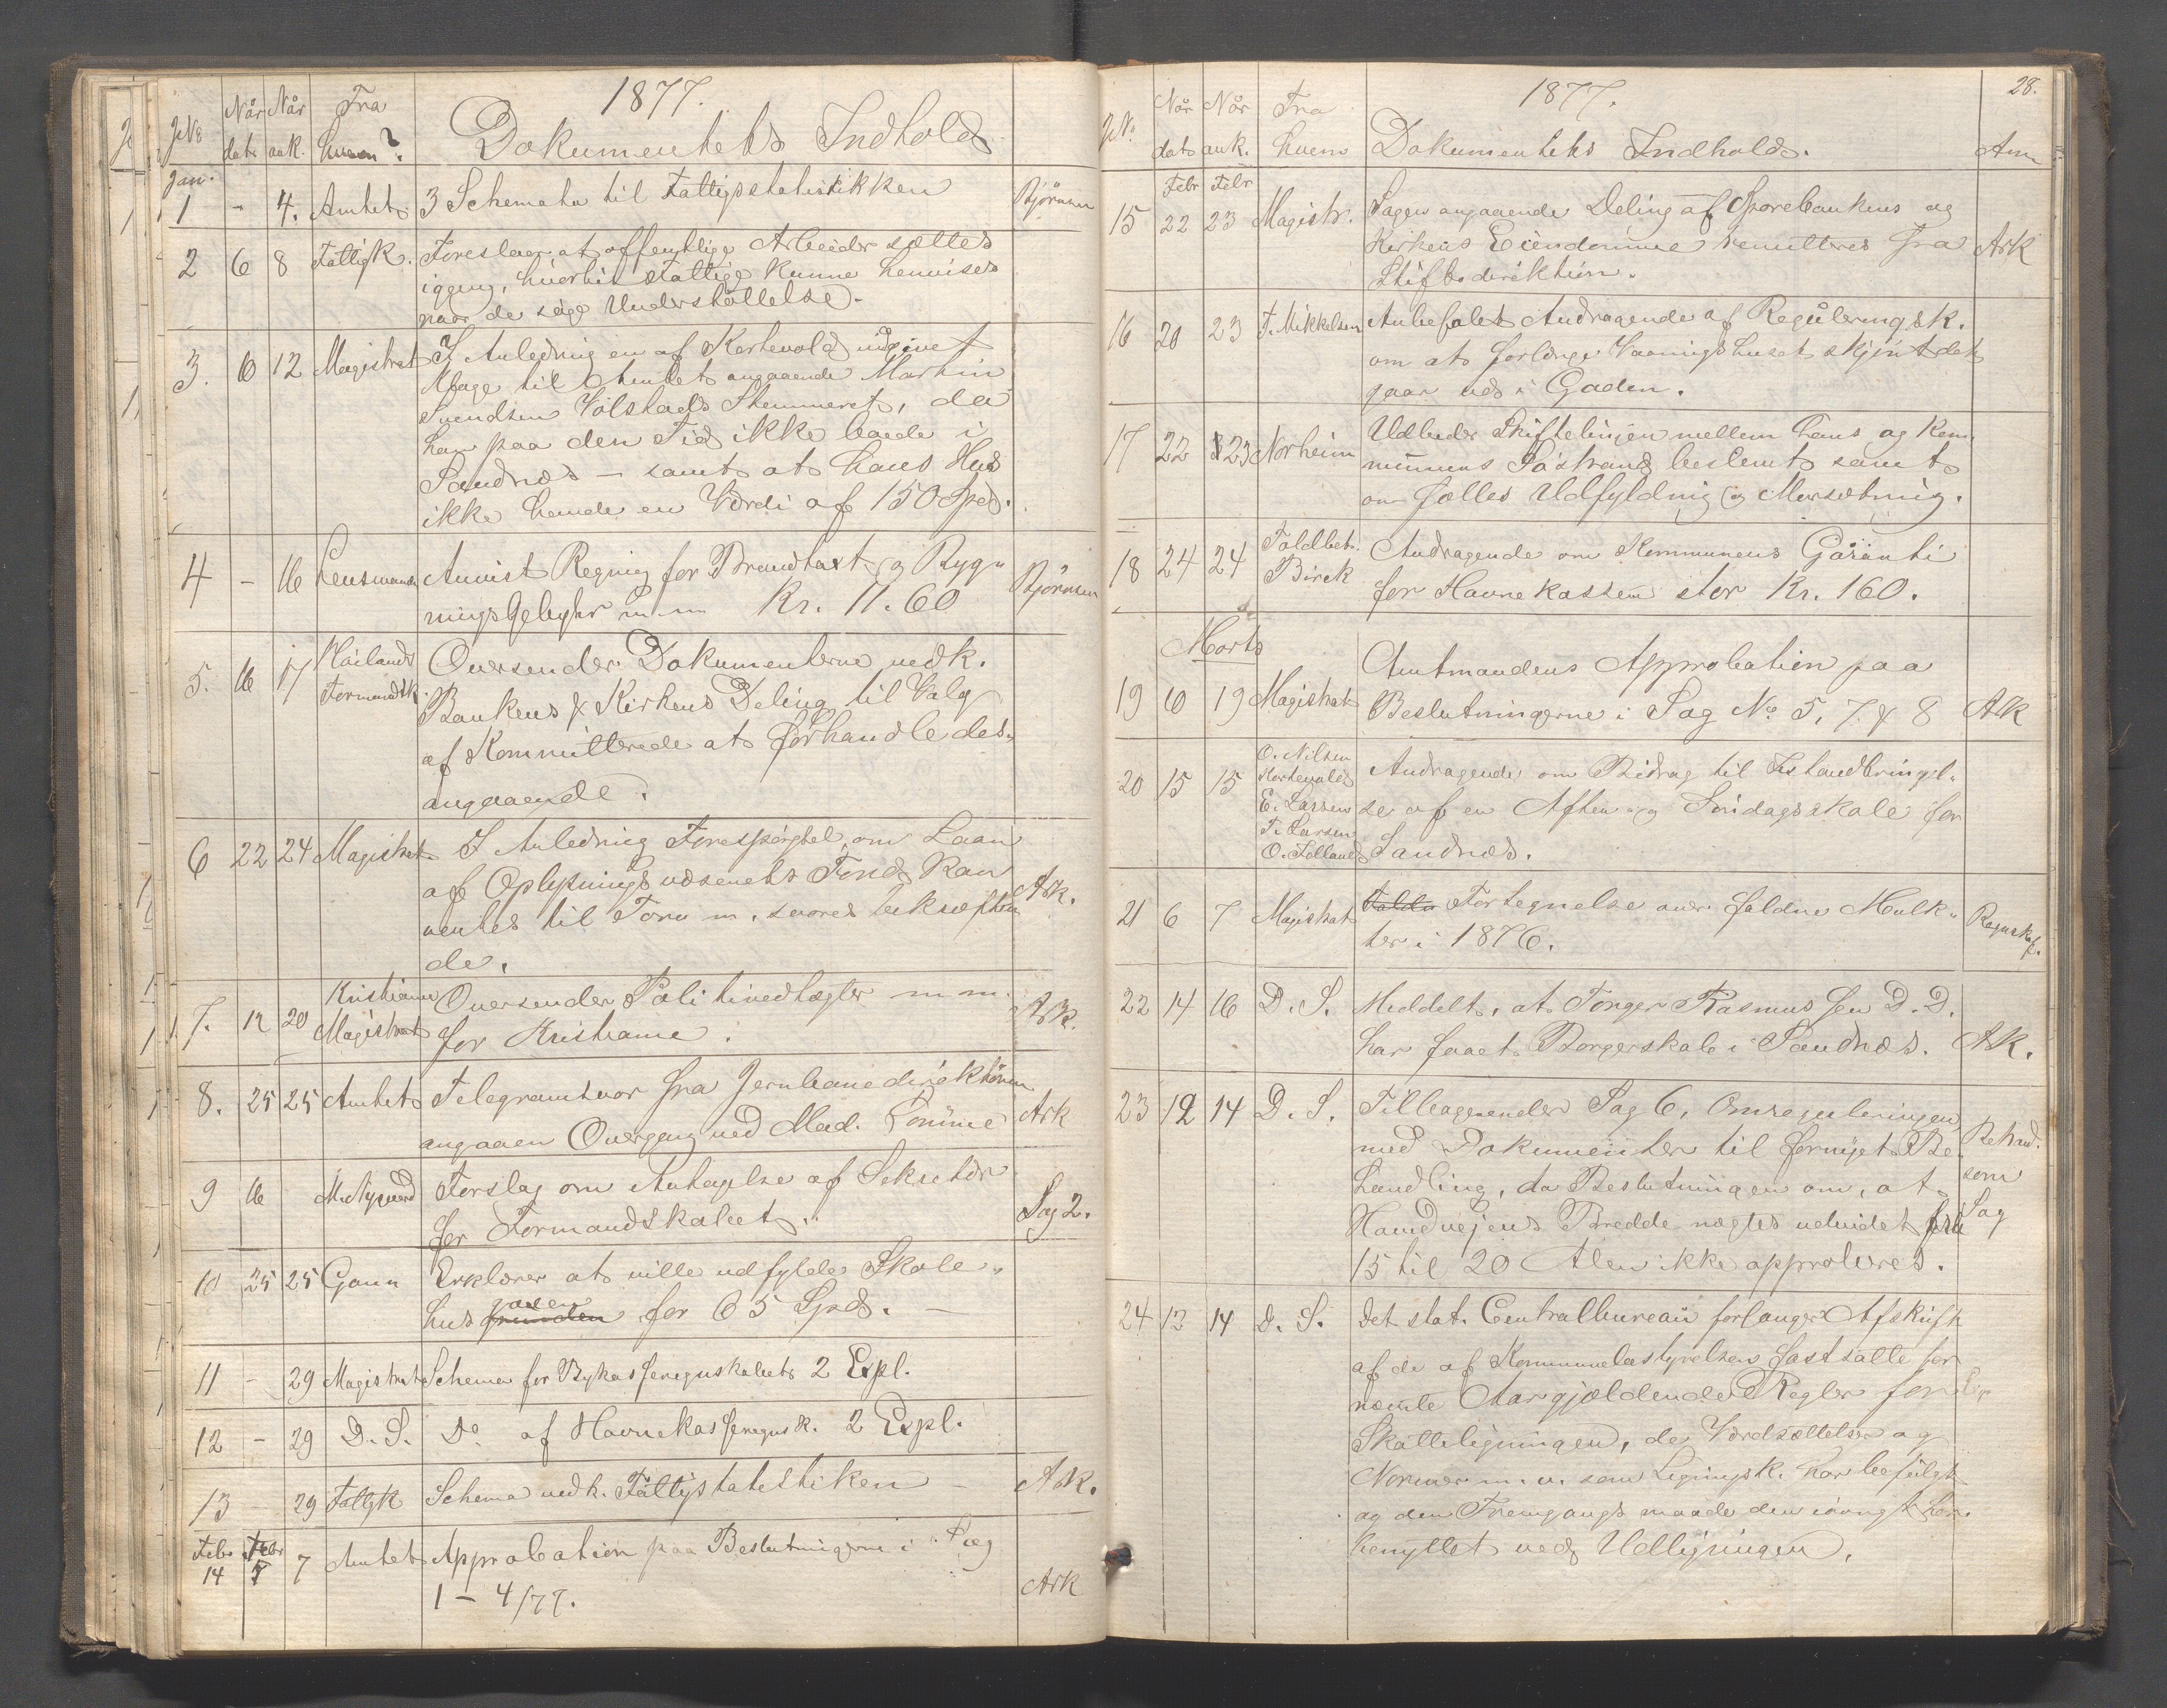 1877.
JN: Når dat. Når ank. Fra hvem? Dokumentets Indhold
Jan.
1 - 4. Amtet 3 Schemata til Fattigstatistikken Bjørnsen
2 6 8 Fattigk. Foreslaar at offentlige Arbeider sættes
igang, hvorhen Fattige kunne henvises
naar de søge Understøttelse.
3. 6 12 Magistrat I Anledning en af Kortevold indgivet
Klage til Amtet angaaende Martin
Svendsen Volstads Stemmeret, da
han paa den Tid ikke boede i
Sandnæs - samt at hans Hus
ikke havde en Værdi af 150 Spd.
4 - 16 Lensmanden Anvist Regning for Brandtaxt og Byg-
ningsgebyhr m.m. Kr. 11.60 Bjørnsen
5. 16 17 Høilands Formandsk. Oversender Dokumenterne vedk.
Bankens & Kirkens Deling til Valg
af Kommitterede at forhandle des-
angaaende.
6 22 24 Magistrat I Anledning Forespørgsel, om Laan
af Oplysningsvæsenets Fond kan
ventes til Torv m. svares bekræften
de. Ark.
7. 12 20 Kristiania Magistrat Oversender Politivedtægter m m.
for Kristiania. Ark.
8. 25 25 Amtet Telegramsvar fra Jernbanedirektøren
angaaen Overgang ved Mad. Rønne Ark
9 16 M. Nygaard Forslag om Antagelse af Sekretær
for Formandskabet. Sag 2.
10 25 25 Gann Erklærer at ville udfylde Skole-
gaven
hus grunden for 65 Spd. -
11 - 29 Magistrat Schema for Bykasseregnskabet 2 Expl.
12 - 29 D. S. Do af Havnekasseregnsk. 2 Expl.
13 - 29 Fattigk Schema vedk. Fattigstatestiken - Ark.
Febr Febr
14 5 7 Amtet Approbation paa Beslutningerne i Sag
1 - 4/77. Ark
28.
1877.
JN. Når dat Når ank. Fra hvem Dokumentets Indhold. Anm
Febr Febr
15 22 23 Magistr. Sagen angaaende Deling af Sparebankens og
Kirkens Eiendomme remitteres fra
Stiftsdirektion. Ark
16 20 23 T. Mikkelsen Anbefalet Andragende af Reguleringsk.
om at forlænge Vaaningshuset skjønt det
gaar ud i Gaden.
17 22 23 Norheim Udbeder Skiftelinjen mellem hans og Kom-
munens Søstrand bestemt samt
om fælles Udfyldnig og Mursætnig.
18 24 24 Toldbet. Birck Andragende om Kommunens Garanti
for Havnekassen stor Kr. 160.
Marts
19 10 19 Magistrat Amtmandens Approbation paa
Beslutningerne i Sag No 5, 7 & 8 Ark
20 15 15 O. Nilsen Kortevold E. Larsen T. Larsen O. Folland Andragende om Bidrag til Istandbringel-
se af en Aften og Søndagsskole for
Sandnæs.
21 6 7 Magistrat Faldne Fortegnelse over faldne Mulk-
ter i 1876. Regnskbf.
22 14 16 D. S. Meddelt, at Tonger Rasmussen D. D.
har faaet Borgerskab i Sandnæs. Ark.
23 12 14 D. S. Tilbagesender Sag 6, Omreguleringen
med Dokumenter til fornyet Be-
handling, da Beslutningen om, at
Havnvejens Bredde nægtes udvidet fra
15 til 20 Alen ikke approberes. Behand. som Sag
24 13 14 D. S. Det stat. Centralbureau forlanger Afskrift
af de af Kommunebestyrelsen fastsatte for
nævnte Aar gjældende Regler for
Skatteligningen, de Værdsættelser og
Normer m. v. som Ligningsk. har befulgt
og den Fremgangsmaade den iøvrigt har
benyttet ved Udligningen.